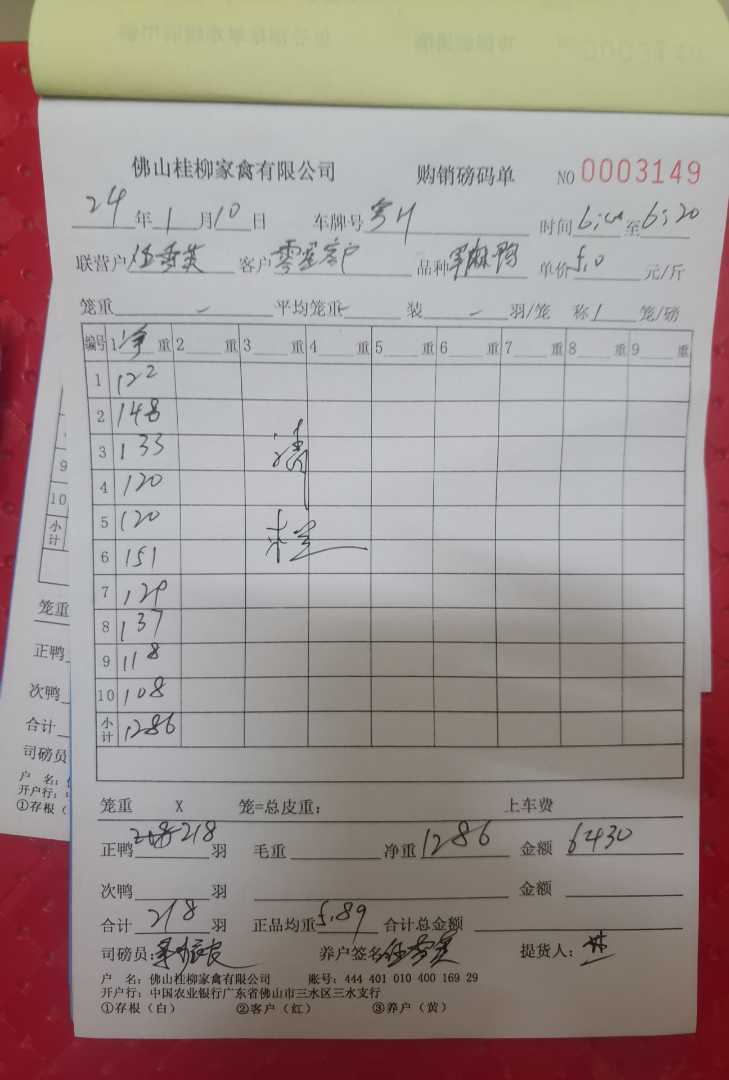 佛山桂柳家禽有限公司 购销磅码单 NO 0003149
24 年 1 月 10 日 车牌号 时间 6: 至 6:20
联营户 客户 零星客户 品种 麻鸭 单价 5.0 元/斤
笼重 - 平均笼重 - 装 - 羽/笼 称 1 笼/磅
编号 1 净 重 2 重 3 重 4 重 5 重 6 重 7 重 8 重 9 重
1 122
2 148
3 133
4 120
5 120
6 151
7 129
8 137
9 118
10 108
小计 1286
笼重 X 笼=总皮重: 上车费
正鸭 218 羽 毛重 净重 1286 金额 6430
次鸭 羽 金额
合计 218 羽 正品均重 5.89 合计总金额
司磅员: 养户签名 提货人:
户 名: 佛山桂柳家禽有限公司 账号: 444 401 010 400 169 29
开户行: 中国农业银行广东省佛山市三水区三水支行
①存根(白) ②客户(红) ③养户(黄)
9
10
小计
笼重
正鸭
次鸭
合计
司磅员
户 名:
开户行:
①存根(